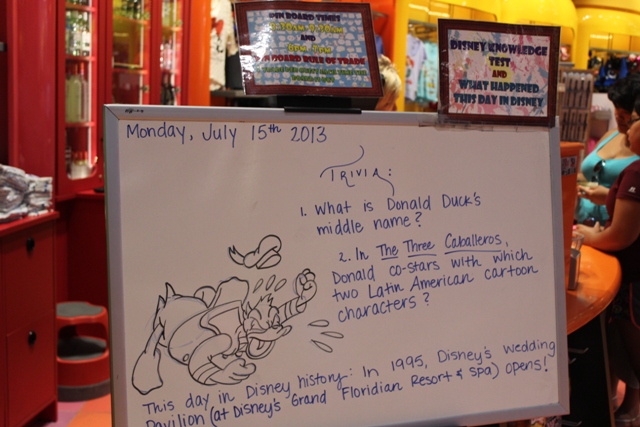 PIN BOARD TIMES
AND
PIN BOARD RULE OF TRADE
DISNEY KNOWLEDGE
TEST
AND
WHAT HAPPENED
THIS DAY IN DISNEY
Monday, July 15th 2013
Trivia:
1. What is Donald Duck's
middle name?
2. In The Three Caballeros,
Donald co-stars with which
two Latin American cartoon
characters?
This day in Disney history: In 1995, Disney's wedding
Pavilion (at Disney's Grand Floridian Resort & Spa) opens!